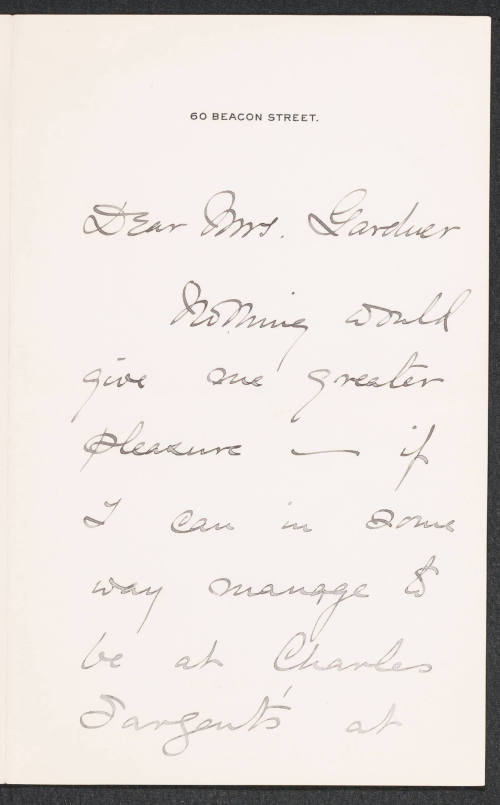 60 BEACON STREET.
Dear Mrs. Gardner
Nothing would
give me greater
pleasure — if
I can in some
way manage to
be at Charles
Sargent's at